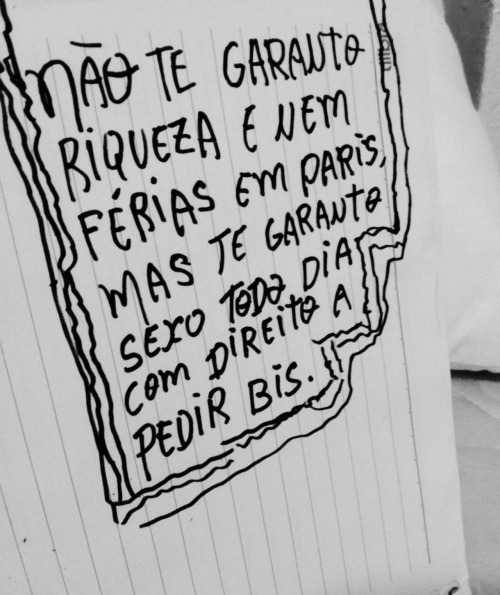 NÃO TE GARANTO
RIQUEZA E NEM
FÉRIAS EM PARIS,
MAS TE GARANTO
SEXO TODO DIA
COM DIREITO A
PEDIR BIS.